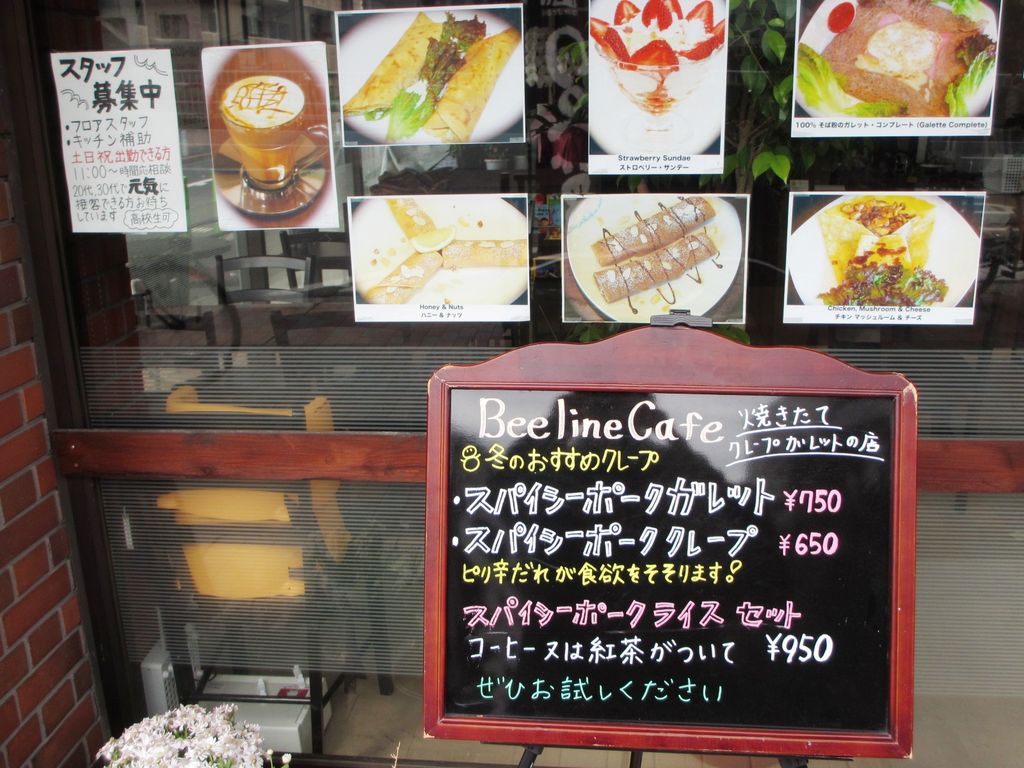 スタッフ
募集中
・フロアスタッフ
・キッチン補助
土日祝出勤できる方
11:00〜時間応相談
20代,30代で元気に
接客できる方お待ち
しています 高校生可
Strawberry Sundae
ストロベリー・サンデー
100% そば粉のガレット・コンプレート (Galette Complete)
Honey & Nuts
ハニー & ナッツ
Chicken, Mushroom & Cheese
チキン マッシュルーム & チーズ
Beeline Cafe
焼きたて
クレープガレットの店
冬のおすすめクレープ
・スパイシーポークガレット ¥750
・スパイシーポーククレープ ¥650
ピリ辛だれが食欲をそそります!
スパイシーポークライス セット
コーヒー又は紅茶がついて ¥950
ぜひお試しください